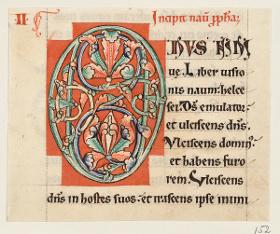 II
Incipit naū ppha;
ONUS NINI
ue Liber uisio
nis naum helce
sei. Ds emulator
et ulciscens dns.
Ulciscens domin
et habens furo
rem. Ulciscens
dns in hostes suos et irascens ipse inimi
152